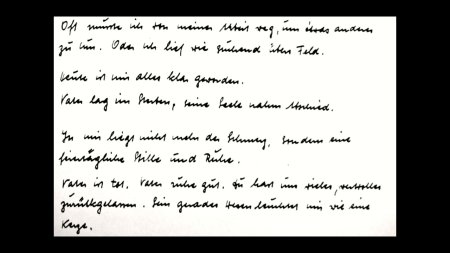 Oft musste ich von meiner Arbeit weg, um etwas anderes
zu tun. Oder ich lief wie suchend übers Feld.
Heute ist mir alles klar geworden.
Vater lag im Sterben, seine Seele nahm Abschied.
In mir liegt nicht mehr der Schmerz, sondern eine
feiertägliche Stille und Ruhe.
Vater ist tot. Vater ruhe gut. Du hast uns vieles, wertvolles
zurückgelassen. Dein gerades Wesen leuchtet mir wie eine
Kerze.